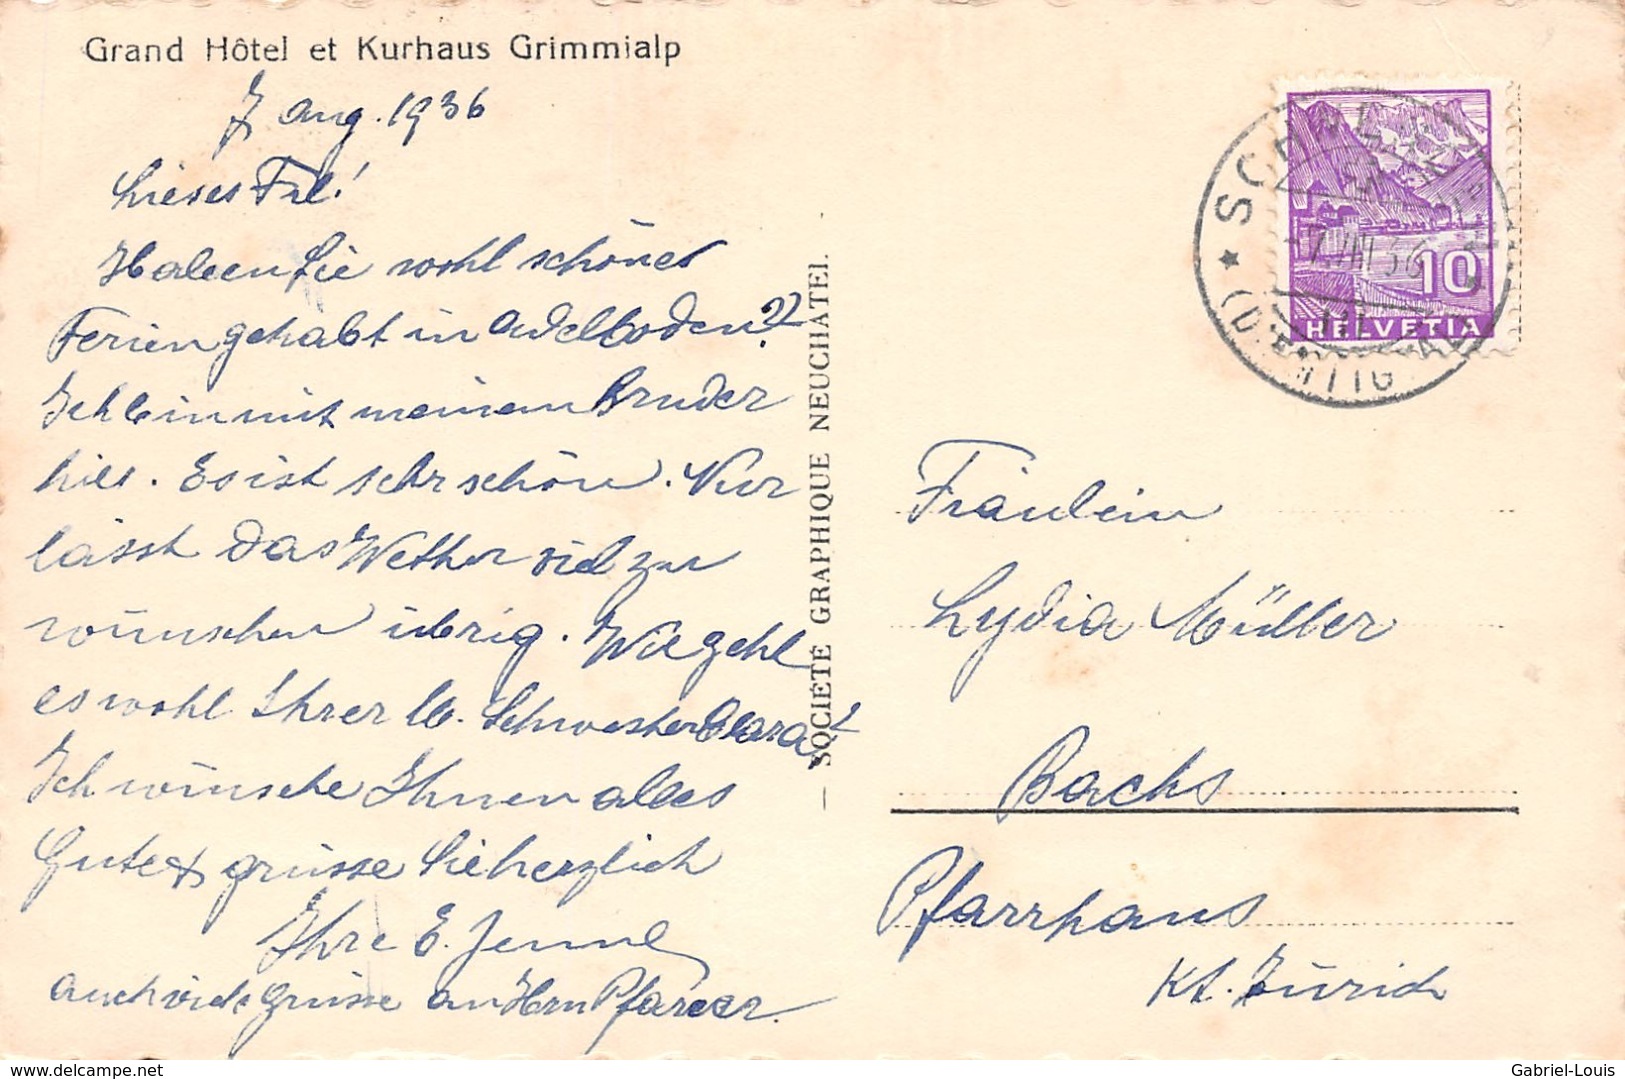 Grand Hôtel et Kurhaus Grimmialp
7 Aug. 1936
Liebes Frl!
Haben Sie wohl schöne
Ferien gehabt in Adelboden??
Ich bin mit meinem Bruder
hier. Es ist sehr schön. Nur
lässt das Wetter viel zu
wünschen übrig. Wie geht
es wohl Ihrer lb. Schwester Clara?
Ich wünsche Ihnen alles
Gute & grüsse Sie herzlich
Ihre E. Jenne
auch viele Grüsse an Hrn Pfarrer.
SOCIÉTÉ GRAPHIQUE NEUCHATEL
7.VIII 36
(DIEMTIGTAL)
10
HELVETIA
Fräulein
Lydia Müller
Bachs
Pfarrhaus
Kt. Zürich
www.delcampe.net
Gabriel-Louis